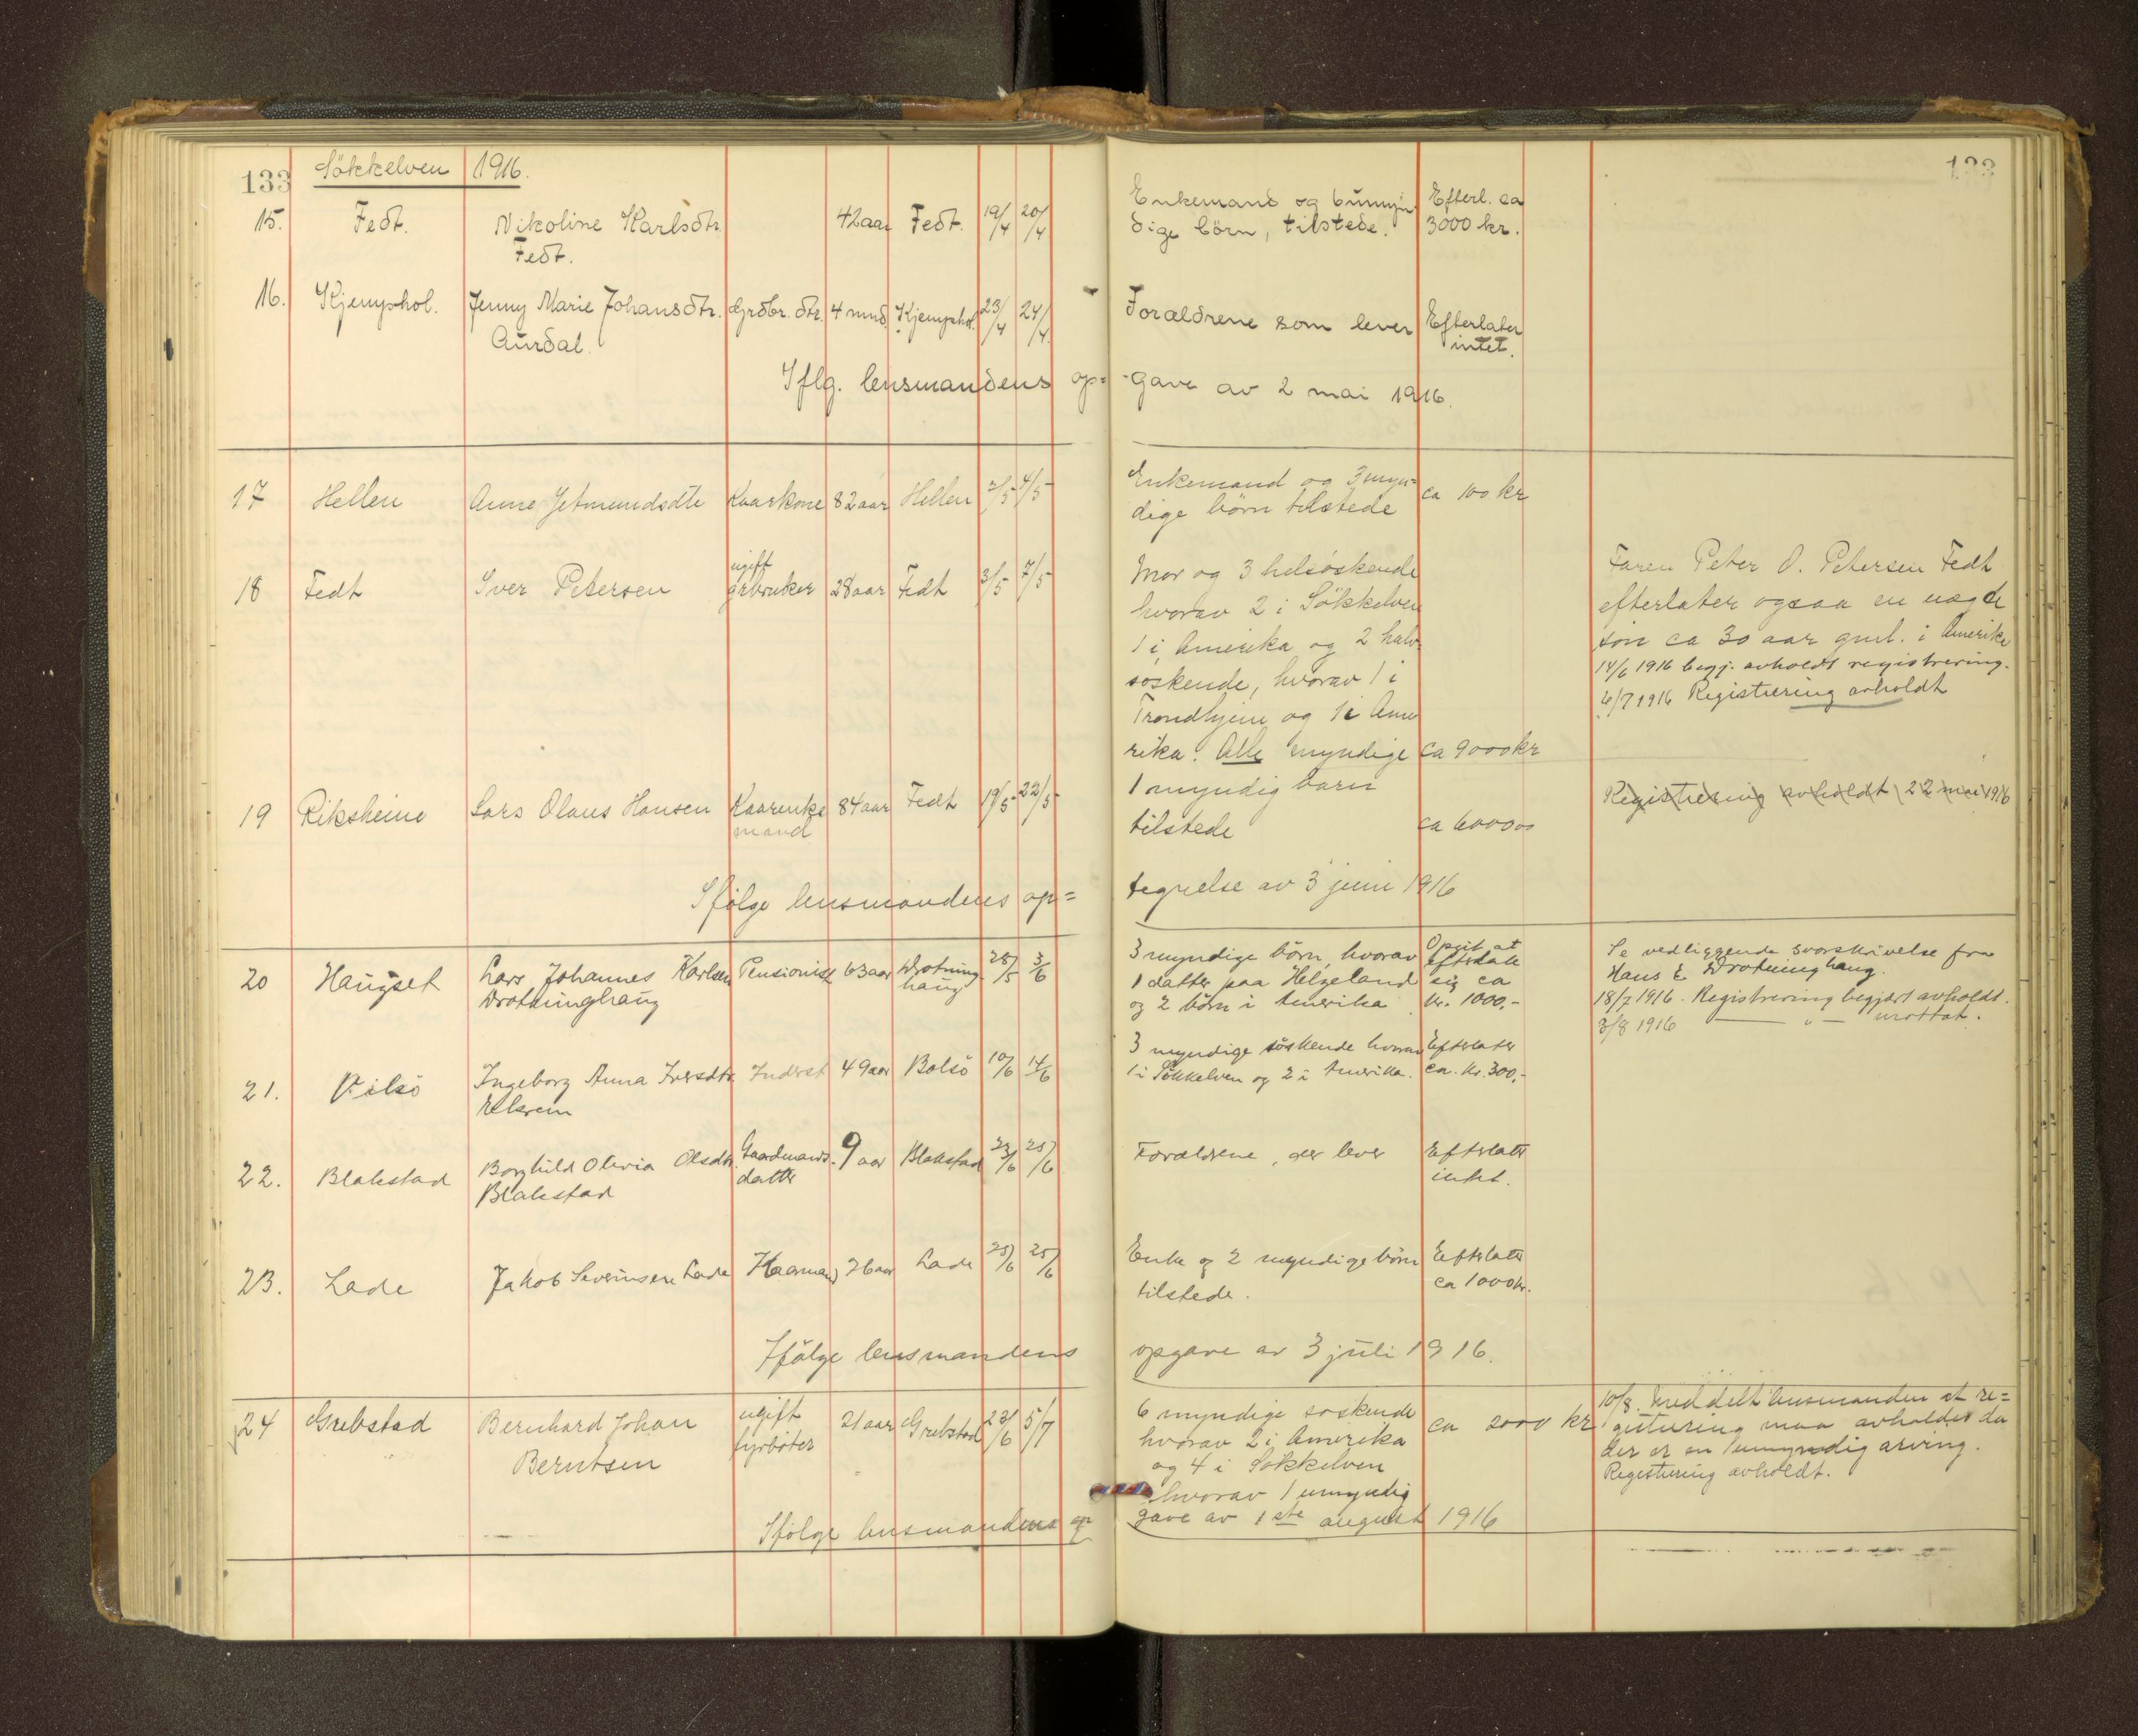 133 Sökkelven 1916. 133
15. Fedt. Nikoline Karlsdtr. 42 aar Fedt. 19/4 20/4 Enkemand og 6 umyn- Efterl. ca
Fedt. dige börn, tilstede. 3000 kr.
16. Kjemphol. Jenny Marie Johansdtr. Grdbr. dtr. 4 mnd. Kjemphol. 23/4 24/4 Forældrene som lever Efterlater
Aurdal. intet.
Iflg. lensmandens op= -gave av 2 mai 1916.
17 Hellen Anne Jetmundsdtr Kaarkone 82 aar Hellen 2/5 4/5 Enkemand og 3 myn= ca 100 kr
dige börn tilstede
18 Fedt Iver Petersen ugift 28 aar Fedt 3/5 7/5 Mor og 3 helsöskende Faren Peter O. Petersen Fedt
grbruker hvorav 2 i Sökkelven efterlater ogsaa en uægte
1 i Amerika og 2 halv= sön ca 30 aar gml. i Amerika
söskende, hvorav 1 i 14/6 1916 begj. avholdt registrering.
Trondhjem og 1 i Ame 6/7 1916 Registrering avholdt
rika. Alle myndige ca 9000 kr
19 Riksheim Lars Olaus Hansen Kaarenke 84 aar Fedt 19/5 22/5 1 myndig barn Registrering avholdt 22 mai 1916
mand tilstede ca 6000 00
Ifölge lensmandens op= tegnelse av 3 juni 1916
20 Haugset Lars Johannes Karlsen Pensionist 63 aar Drotning- 28/5 3/6 3 myndige börn, hvorav Opgit at Se vedliggende svarskrivelse fra
Drotninghaug haug 1 datter paa Helgeland efterlate Hans E Drotninghaug.
og 2 börn i Amerika sig ca 18/7 1916. Registrering begjært avholdt.
kr. 1000,- 3/8 1916 — " — mottat.
21. Vilsö Ingeborg Anna Iversdtr Inderst 49 aar Bolsö 10/6 14/6 3 myndige söskende hvorav Efterlater
Ekrem 1 i Sökkelven og 2 i Amerika. ca. kr. 300,-
22. Blakstad Borghild Olivia Olsdtr. Gaardmands- 9 aar Blakstad 23/6 25/6 Forældrene, der lever Efterlater
Blakstad datter intet.
23. Lade Jakob Severinsen Lade Kaarmand 76 aar Lade 25/6 25/6 Enke og 2 myndige börn Efterlater
tilstede. ca 1000 kr.
Ifölge lensmandens opgave av 3 juli 1916.
24 Grebstad Bernhard Johan ugift 21 aar Grebstad 23/6 5/7 6 myndige söskende ca 2000 kr 10/8. Meddelt lensmanden at re=
Berntsen fyrböter hvorav 2 i Amerika gistrering maa avholdes da
og 4 i Sökkelven der er en 1 umyndig arving.
hvorav 1 umyndig Registrering avholdt.
Ifölge lensmandens op gave av 1ste august 1916